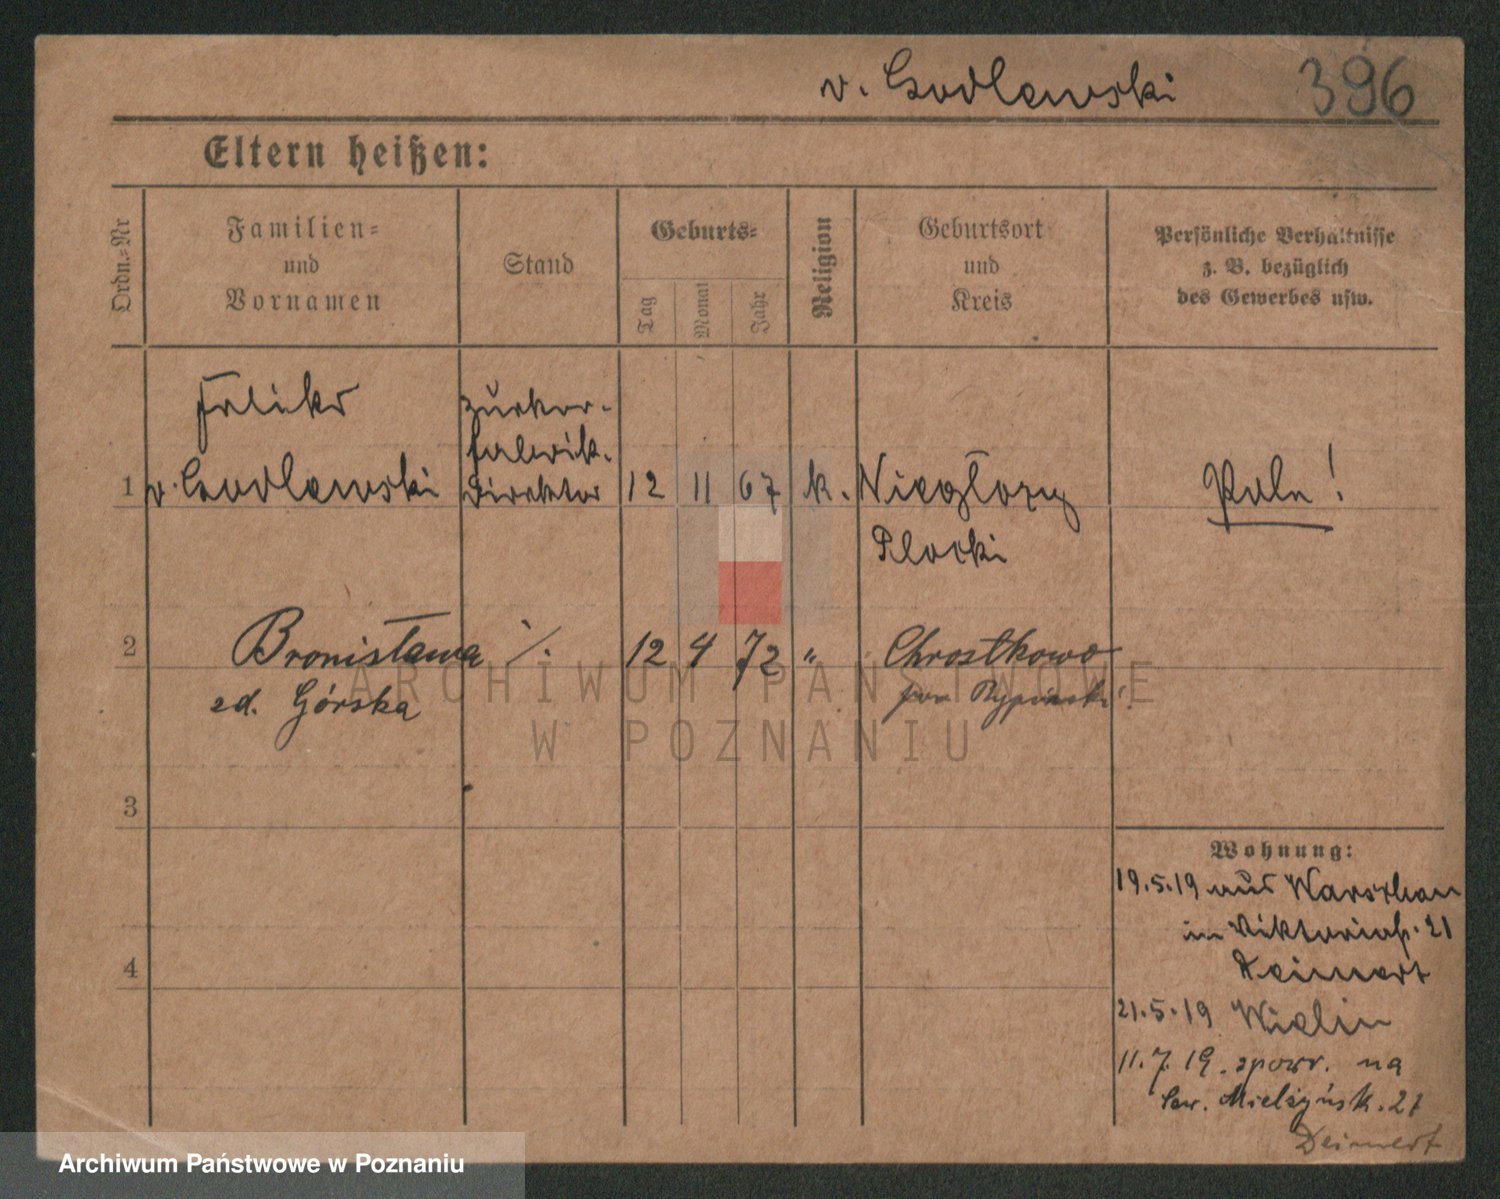 v. Godlewski 396
Eltern heißen:
Ordn.-Nr
Familien-
und
Vornamen
Stand
Geburts-
Tag
Monat
Jahr
Religion
Geburtsort
und
Kreis
Persönliche Verhältnisse
z. B. bezüglich
des Gewerbes usw.
Feliks
Zucker-
fabrik-
1 v. Godlewski Direktor 12 11 67 k. Niegłosy Pole!
Plocki
2 Bronisława ./. 12 4 72 " Chrostkowo
zd. Górska pow Rypinski
3
Wohnung:
19.5.19 aus Warschau
in Viktoriastr. 21
Deimert
4
21.5.19 Wielin
11.7.19. zpowr. na
Sew. Mielżyńsk. 21
Deimert
ARCHIWUM PAŃSTWOWE
W POZNANIU
Archiwum Państwowe w Poznaniu